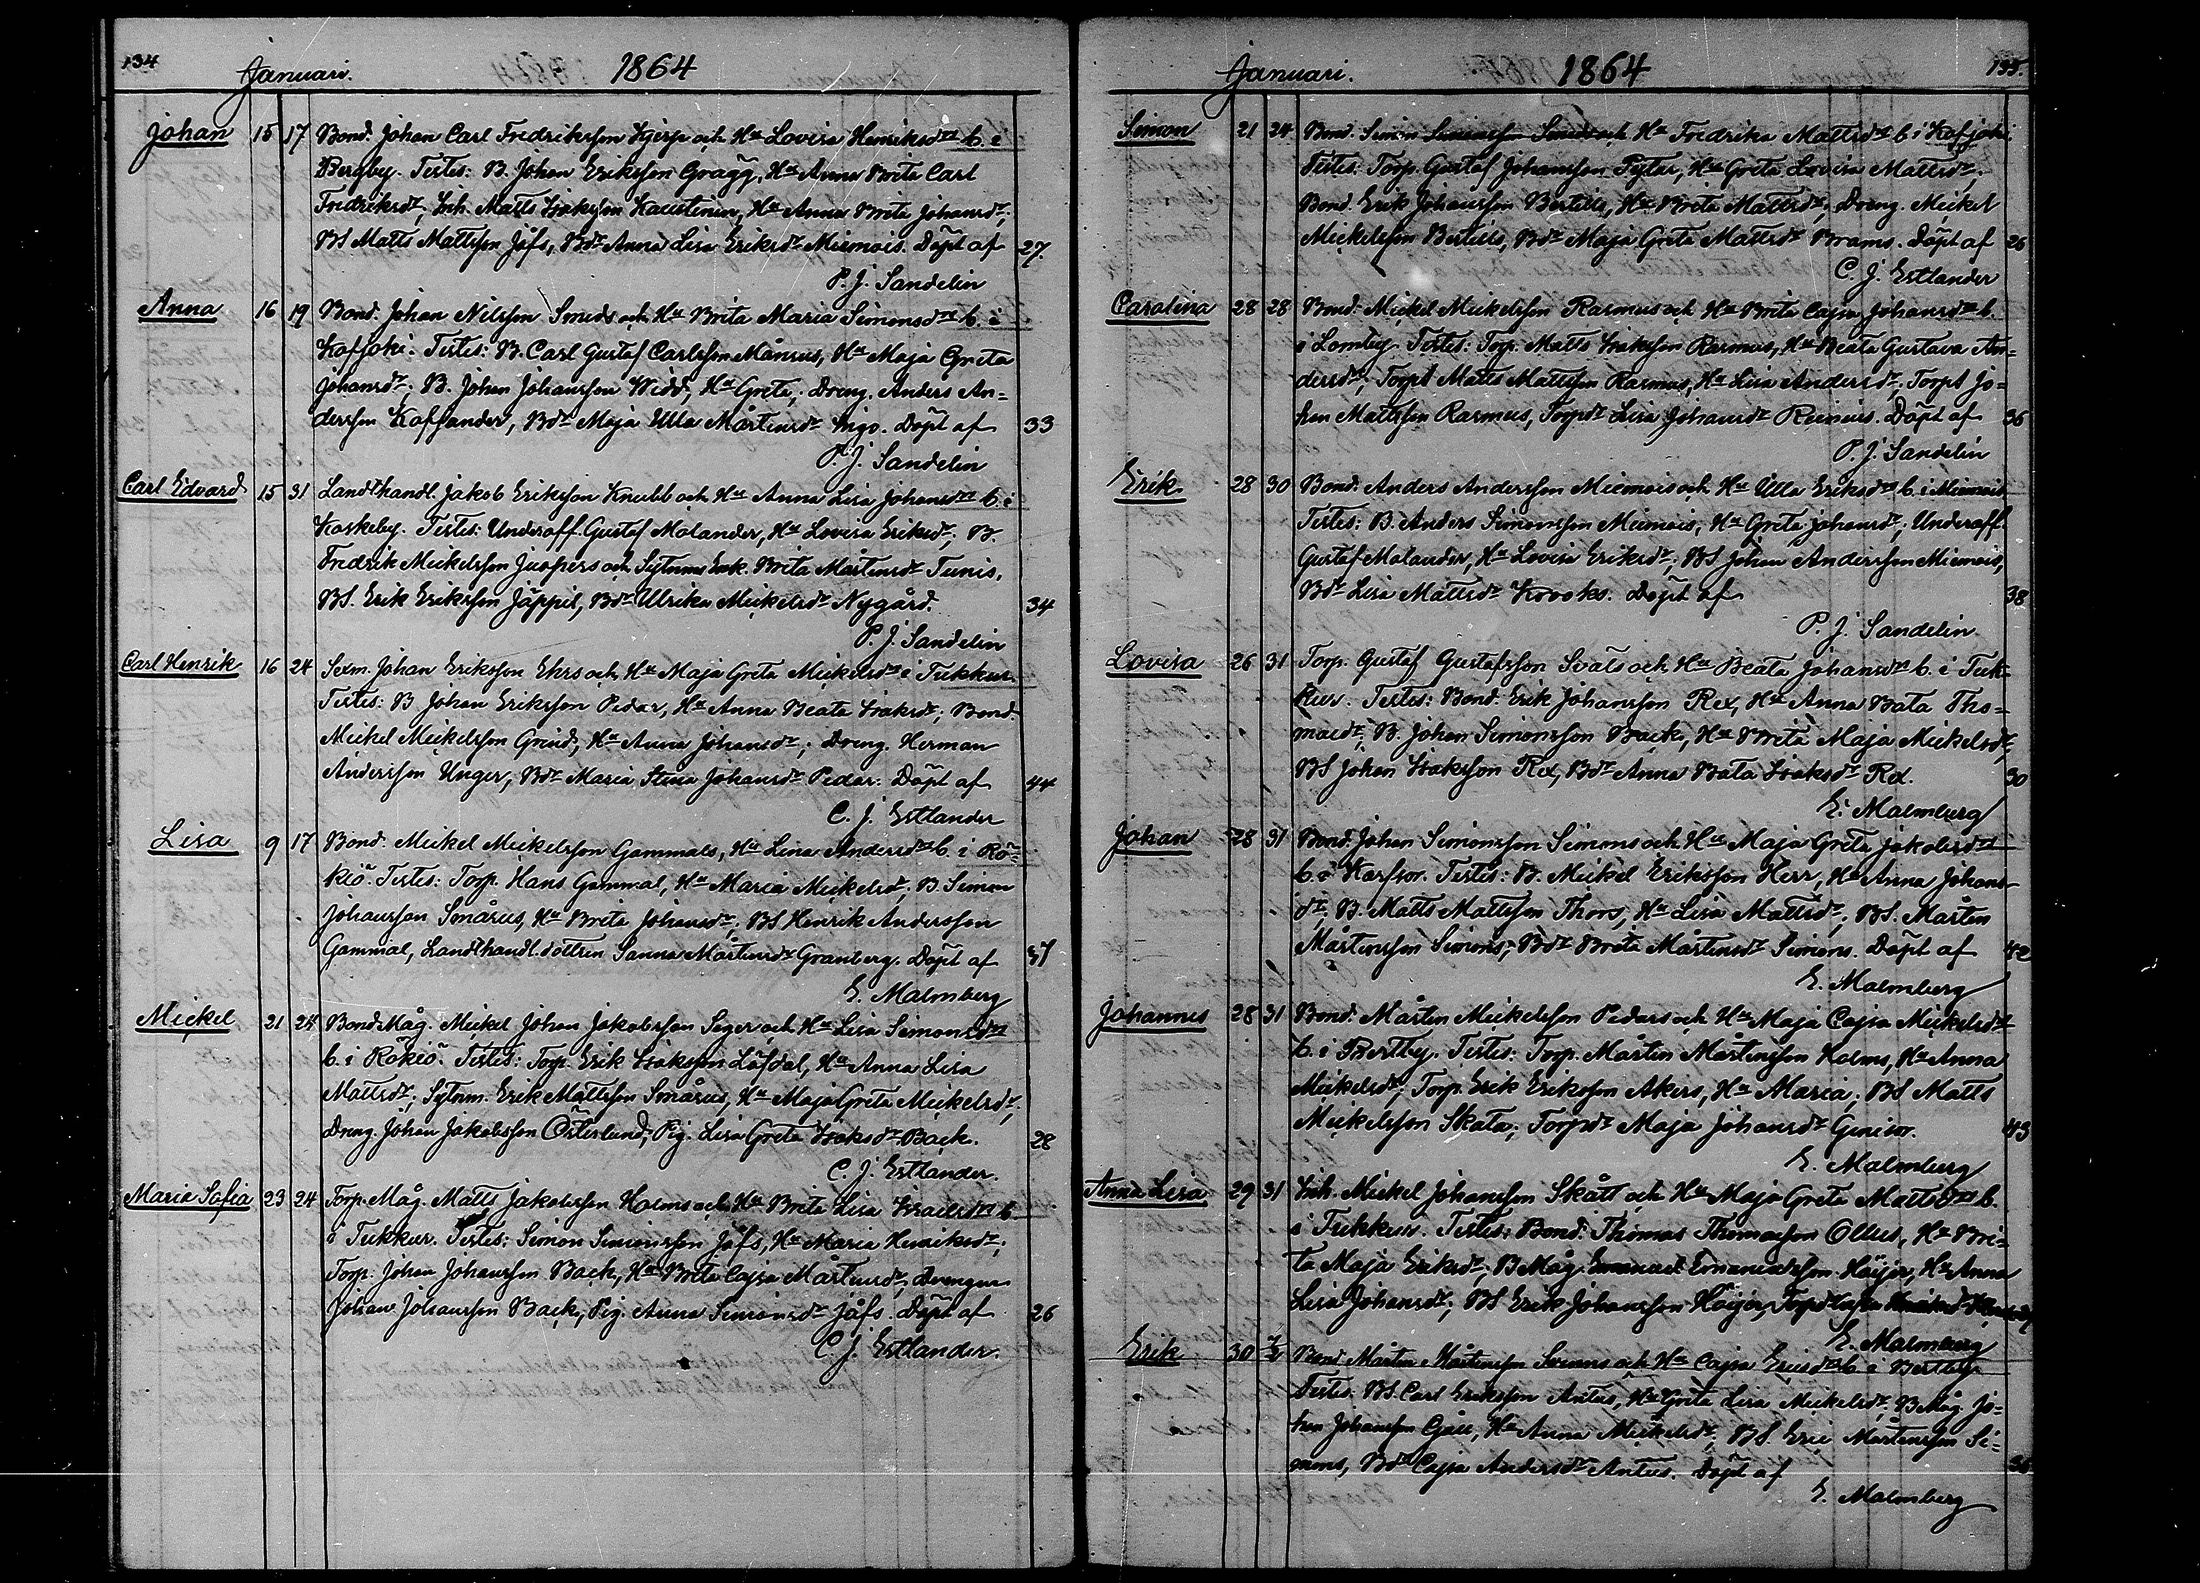 134 Januari. 1864
Johan 15 17 Bond. Johan Carl Fredriksson och Hu Lovisa Henriksdr b. i
Bergby. Testes: B. Johan Eriksson Grägg, Hu Anna Brita Carl
Fredriksdr, Inh. Matts Isaksson Kaustinen, Hu Anna Brita Johansdr;
BS Matts Mattsson Jåfs, Bdr Anna Lisa Eriksdr Miemois. Döpt af 27.
P. J. Sandelin
Anna 16 19 Bond. Johan Nilsson Smeds och Hu Brita Maria Simonsdr b. i
Kafjoki. Testes: B. Carl Gustaf Carlsson Månsus, Hu Maja Greta
Johansdr; B. Johan Johansson Widd, Hu Greta; Dreng. Anders An=
dersson Kaffander, Bdr Maja Ulla Mårtensdr Ingo. Döpt af 33
P. J. Sandelin
Carl Edvard 15 31 Landthandl. Jakob Eriksson Knubb och Hu Anna Lisa Johansdr b. i
Koskeby. Testes: Underoff. Gustaf Molander, Hu Lovisa Eriksdr; B.
Fredrik Mickelsson Juspers och Sytnms Enk. Brita Mårtensdr Tunis,
BS. Erik Eriksson Jäppil, Bdr Ulrika Mickelsdr Nygård. 34
P. J. Sandelin
Carl Henrik 16 24 Sexm. Johan Eriksson Ehrs och Hu Maja Greta Mickelsdr i Tukkur.
Testes: B Johan Eriksson Pedar, Hu Anna Beata Isaksdr; Bond.
Mickel Mickelsson Grind, Hu Anna Johansdr; Dreng. Herman
Andersson Unger, Bdr Maria Stina Johansdr Pedar. Döpt af 44
C. J. Estlander
Lisa 9 17 Bond. Mickel Mickelsson Gammals, Hu Lena Andersdr b. i Rö=
kiö. Testes: Torp. Hans Gammal, Hu Maria Mickelsdr, B. Simon
Johansson Smårus, Hu Brita Johansdr; BS Henrik Andersson
Gammal, Landthandl. dottren Sanna Mårtensdr Granberg. Döpt af 37
E. Malmberg
Mickel 21 24 Bond. Måg. Mickel Johan Jakobsson Seger och Hu Lisa Simonsdr
b. i Rökiö. Testes: Torp. Erik Isaksson Löfdal, Hu Anna Lisa
Mattsdr; Sytnm. Erik Mattsson Smårus, Hu Maja Greta Mickelsdr;
Dreng. Johan Jakobsson Österlund, Pig. Lisa Greta Isaksdr Back. 28
C. J. Estlander.
Maria Sofia 23 24 Torp. Måg. Matts Jakobsson Holms och Hu Brita Lisa Israelsdr b.
i Tukkur. Testes: Simon Simonsson Jåfs, Hu Maria Henriksdr;
Torp. Johan Johansson Back, Hu Brita Cajsa Mårtensdr; drengen
Johan Johansson Back, Pig. Anna Simonsdr Jåfs. Döpt af 26
C. J. Estlander.
Januari. 1864 135.
Simon 21 24 Bond. Simon Simonsson och Hu Fredrika Mattsdr b. i Kafjoki
Testes: Torp. Gustaf Johansson Pytar, Hu Greta Lovisa Mattsdr;
Bond. Erik Johansson Bertills, Hu Brita Mattsdr; Dreng. Mickel
Mickelsson Bertills, Bdr Maja Greta Mattsdr Brams. Döpt af 26
C. J. Estlander
Carolina 28 28 Bond. Mickel Mickelsson Rasmus och Hu Brita Cajsa Johansdr b.
i Lomby. Testes: Torp. Matts Isaksson Rasmus, Hu Beata Gustava An=
dersdr; Torp. Matts Mattsson Rasmus, Hu Lisa Andersdr; Torps Jo=
han Mattsson Rasmus, Torpdr Lisa Johansdr Reinius. Döpt af 36
P. J. Sandelin
Erik 28 30 Bond. Anders Andersson Miemois och Hu Ulla Eriksdr b. i Miemois,
Testes: B. Anders Simonsson Miemois, Hu Greta Johansdr; Underoff.
Gustaf Molander, Hu Lovisa Eriksdr; BS Johan Andersson Miemois,
Bdr Lisa Mattsdr Krooks. Döpt af 38
P. J. Sandelin.
Lovisa 26 31 Torp. Gustaf Gustafsson Svals och Hu Beata Johansdr b. i Tuk=
kur. Testes: Bond. Erik Johansson Rex, Hu Anna Bata Tho=
masdr; B. Johan Simonsson Back, Hu Brita Maja Mickelsdr;
BS Johan Isaksson Rex, Bdr Anna Bata Isaksdr Rex. 30
E. Malmberg
Johan 28 31 Bond. Johan Simonsson Simons och Hu Maja Greta Jakobsdr
b. i Karfsor. Testes: B. Mickel Eriksson Herr, Hu Anna Johans
dr; B. Matts Mattsson Thors, Hu Lisa Mattsdr; BS. Mårten
Mårtensson Simons, Bdr Brita Mårtensdr Simons. Döpt af 42
E. Malmberg
Johannes 28 31 Bond. Mårten Mickelsson Pedars och Hu Maja Cajsa Mickelsdr
b. i Bertby. Testes: Torp. Mårten Mårtensson Holms, Hu Anna
Mickelsdr; Torp. Erik Eriksson Akers, Hu Maria; BS Matts
Mickelsson Skata; Torpdr Maja Johansdr 43
E. Malmberg
Anna Lisa 29 31 Inh. Mickel Johansson Skått och Hu Maja Greta Mattsdr b.
i Tukkur. Testes: Bond. Thomas Thomasson Ollus, Hu Bri=
ta Maja Eriksdr; B Måg. Emanuel Emanuelsson Höijer, Hu Anna
Lisa Johansdr; BS Erik Johansson Höijer, Torpdr Cajsa
E. Malmberg
Erik 30 7/2 Bond Mårten Mårtensson Simons och Hu Cajsa Ericsdr b. i Bertby.
Testes: BS. Carl Eriksson Antus, Hu Greta Lisa Mickelsdr; B Måg. Jo=
han Johansson Gjäu, Hu Anna Mickelsdr; BS. Eric Mårtensson Si=
mons, Bdr Cajsa Andersdr Antus. Döpt af 36
E. Malmberg